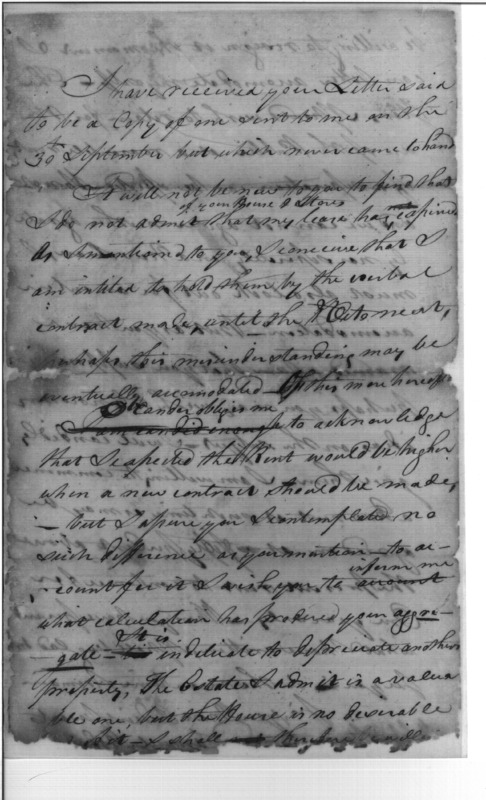 I have received your Letter said
to be a Copy of one sent to me on the
30 September but which never came to hand
It will not be new to you to find that
of your House & Stores
I do not admit that my lease has expired
As I mentioned to you, I conceive that I
am intitled to hold them by the verbal
contract made, until the next,
perhaps this misunderstanding may be
eventually accomodated — Of this more hereafter
Candor obliges me
I candid enough to acknowledge
that I expected the Rent would be higher
when a new contract should be made,
— but I assure you I contemplated no
such difference as you mention — to ac-
inform me
count for it I wish you to account
what calculation has produced your aggre-
It is
gate — indelicate to depreciate anothers
property, The Estate I admit is a valua
ble one, but the House is no desirable
I shall therefore